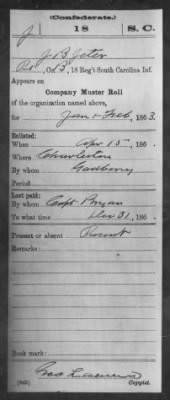 (Confederate.)
J 18 S.C.
J B Jeter
Co. B, 18 Reg't South Carolina Inf.
Appears on
Company Muster Roll
of the organization named above,
for Jan & Feb, 1863.
Enlisted:
When Apr 15, 186
Where Charleston
By whom Gadberry
Period
Last paid:
By whom Capt Bryan
To what time Dec 31, 186
Present or absent Present
Remarks:
Book mark:
(642) Copyist.